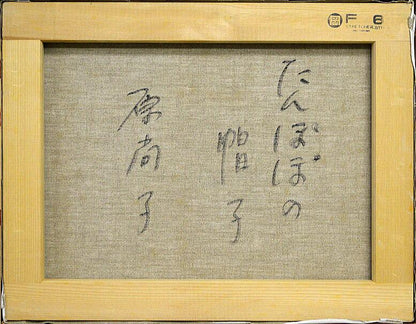 F 6
たんぽぽの
帽子
原尚子